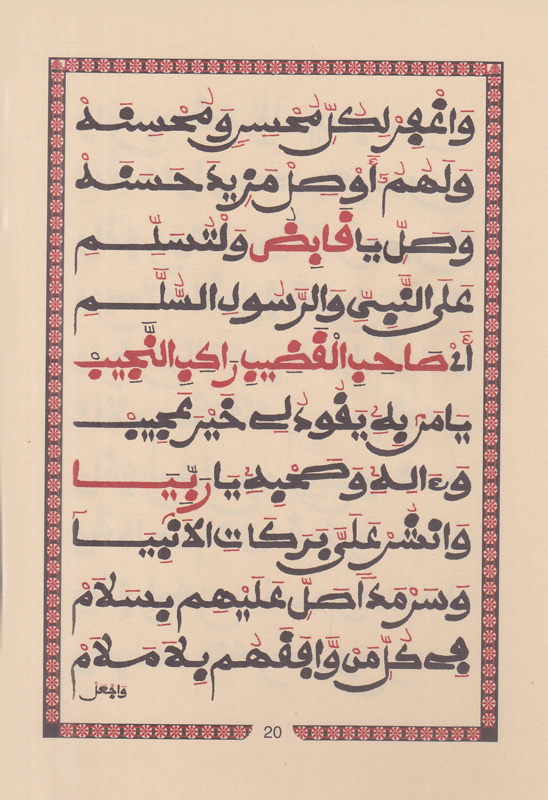 وَاغْفِرْ لِكُلِّ مُحْسِنٍ وَمُحْسِنَهْ
وَلَهُمُ أَوْصِلْ مَزِيدَ حَسَنَهْ
وَصَلِّ يَا قَابِضُ وَلْتُسَلِّمِ
عَلَى النَّبِيِّ وَالرَّسُولِ السُّلَّمِ
أَيْ صَاحِبِ الْقَضِيبِ رَاكِبِ النَّجِيبْ
يَا مَنْ بِهِ يَقُودُ لِي خَيْرَ مُجِيبْ
وَءَالِهِ وَصَحْبِهِ يَا رَبِّيَا
وَانْشُرْ عَلَيَّ بَرَكَاتِ الْأَنْبِيَا
وَسَرْمَدًا صَلِّ عَلَيْهِمْ بِسَلَامْ
فِي كُلِّ مَنْ وَافَقَهُمْ بِلَا مَلَامْ
وَاجْعَلْ
20